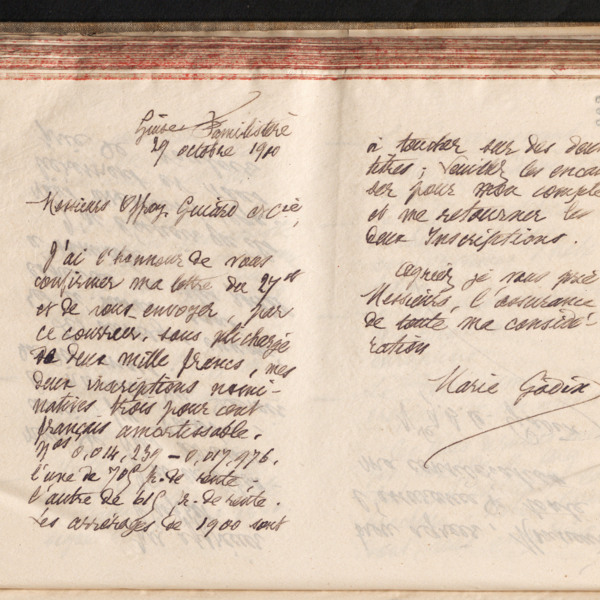 Guise Familistère
29 octobre 1900
Messieurs Offroy, Guiard et Cie,
J'ai l'honneur de vous
confirmer ma lettre du 27 ct
et de vous envoyer, par
ce courrier, sous pli chargé
de deux mille francs, mes
deux inscriptions nomi-
natives trois pour cent
français amortissable.
Nos 0,014,239 - 0,017,976.
l'une de 705 f. de rente,
l'autre de 615 f. de rente.
Les arrérages de 1900 sont
à toucher sur dus deux
titres ; veuillez les encais
ser pour mon compte
et me retourner les
deux Inscriptions.
Agréez, je vous prie
Messieurs, l'assurance
de toute ma considé-
ration
Marie Godin